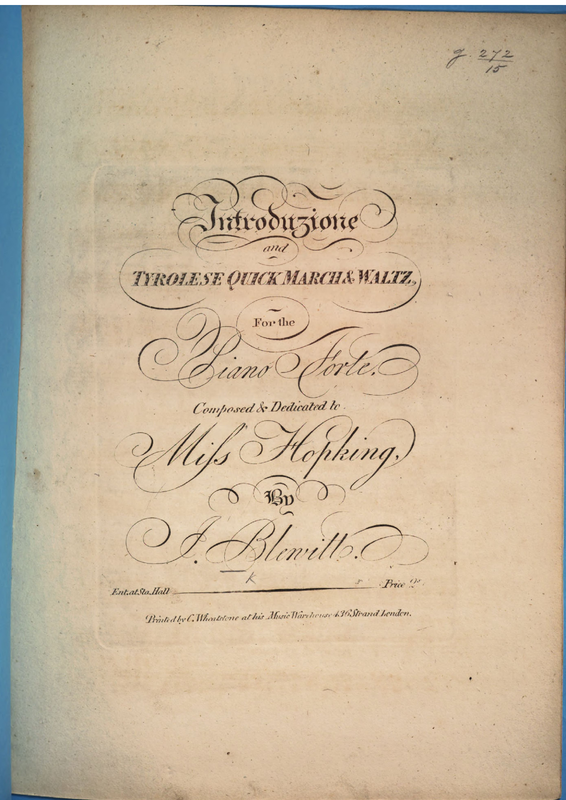 g. 272
15
Introduzione
and
TYROLESE QUICK MARCH & WALTZ,
For the
Piano Forte.
Composed & Dedicated to
Miſs Hopking,
By
J. Blewitt.
K
Ent. at Sta. Hall Price
Printed by C. Wheatstone at his Music Warehouse 436 Strand London.